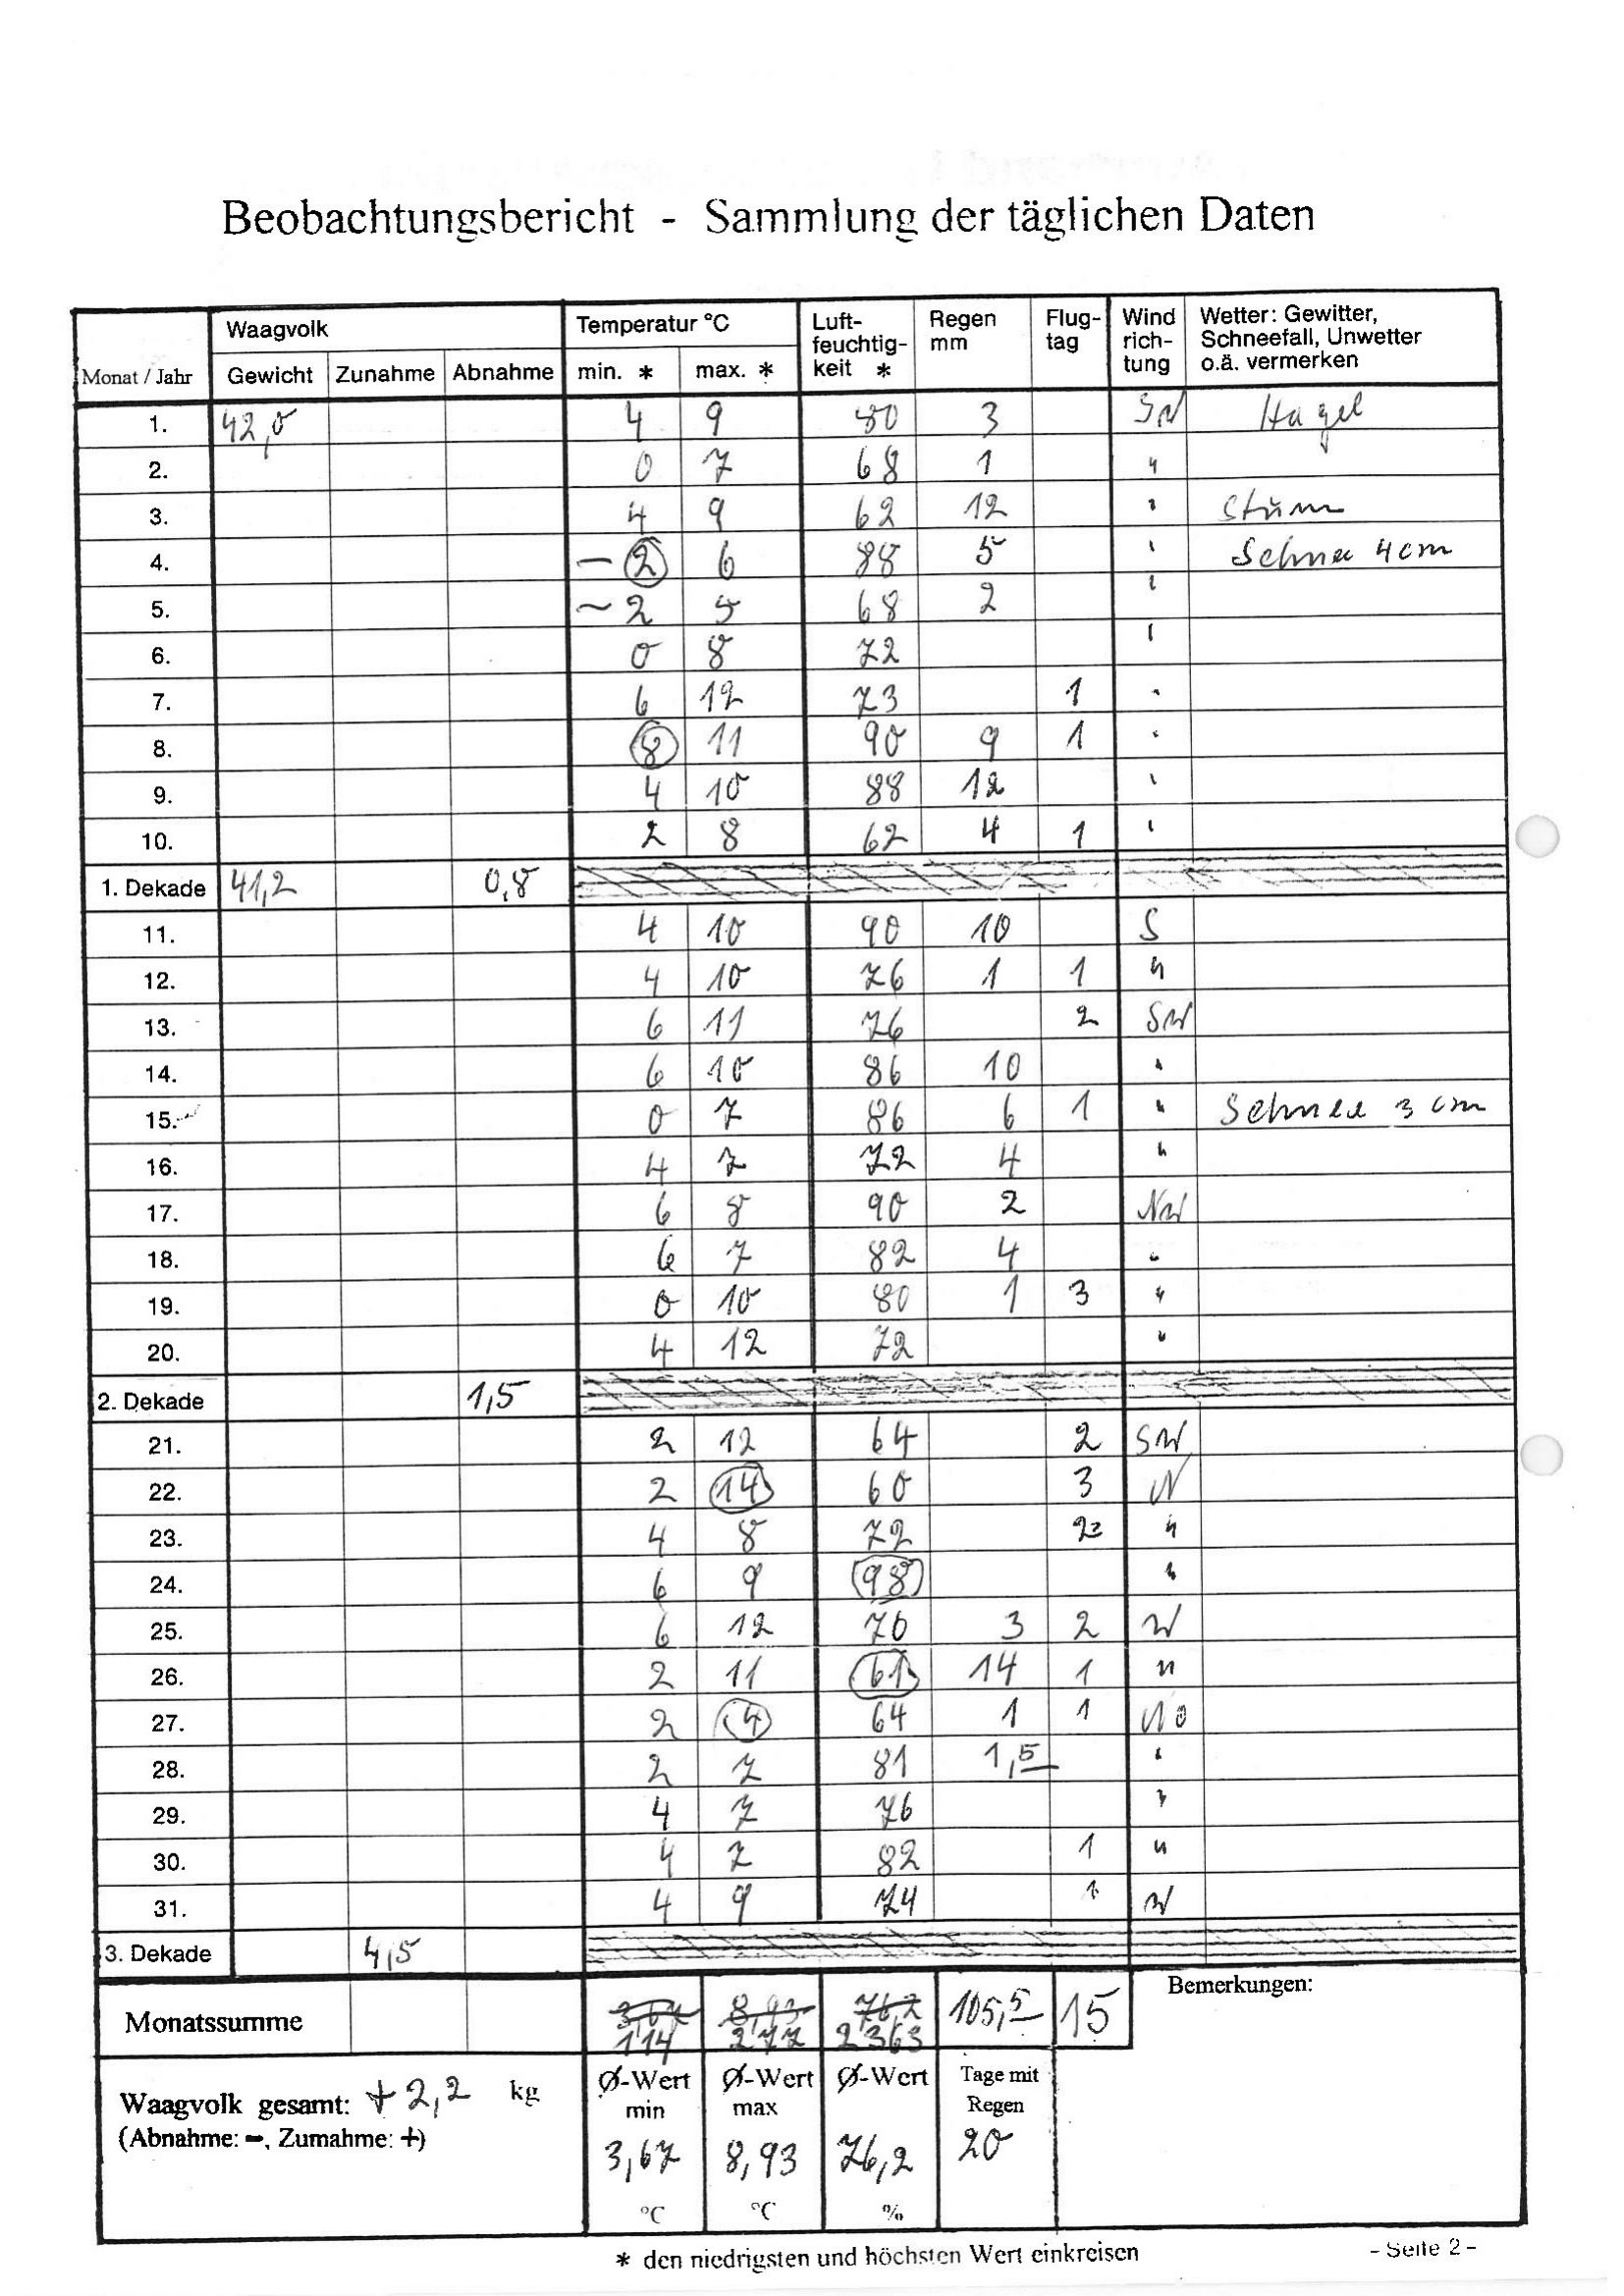 Beobachtungsbericht - Sammlung der täglichen Daten
Monat / Jahr Waagvolk Temperatur °C Luft-feuchtig-keit * Regen mm Flug-tag Wind rich-tung Wetter: Gewitter, Schneefall, Unwetter o.ä. vermerken
Gewicht Zunahme Abnahme min. * max. *
1. 42,0 4 9 80 3 SW Hagel
2. 0 7 68 1 "
3. 4 9 62 12 " Sturm
4. -2 6 88 5 " Schnee 4cm
5. -2 5 68 2 "
6. 0 8 72 "
7. 6 12 73 1 "
8. 8 11 90 9 1 "
9. 4 10 88 12 "
10. 2 8 62 4 1 "
1. Dekade 41,2 0,8
11. 4 10 90 10 S
12. 4 10 76 1 1 "
13. 6 11 76 2 SW
14. 6 10 86 10 "
15. 0 7 86 6 1 " Schnee 3 cm
16. 4 7 72 4 "
17. 6 8 90 2 NW
18. 6 7 82 4 "
19. 0 10 80 1 3 "
20. 4 12 72 "
2. Dekade 1,5
21. 2 12 64 2 SW
22. 2 14 60 3 N
23. 4 8 72 2 "
24. 6 9 98 "
25. 6 12 70 3 2 W
26. 2 11 61 14 1 "
27. 2 4 64 1 1 NO
28. 2 7 81 1,5 "
29. 4 7 76 "
30. 4 7 82 1 "
31. 4 9 74 1 W
3. Dekade 4,5
Monatssumme 3,67 8,93 76,2 105,5 15 Bemerkungen:
114 277 2363
Waagvolk gesamt: +2,2 kg Ø-Wert min Ø-Wert max Ø-Wert Tage mit Regen
(Abnahme: -, Zumahme: +)
3,67 8,93 76,2 20
°C °C %
* den niedrigsten und höchsten Wert einkreisen
- Seite 2 -